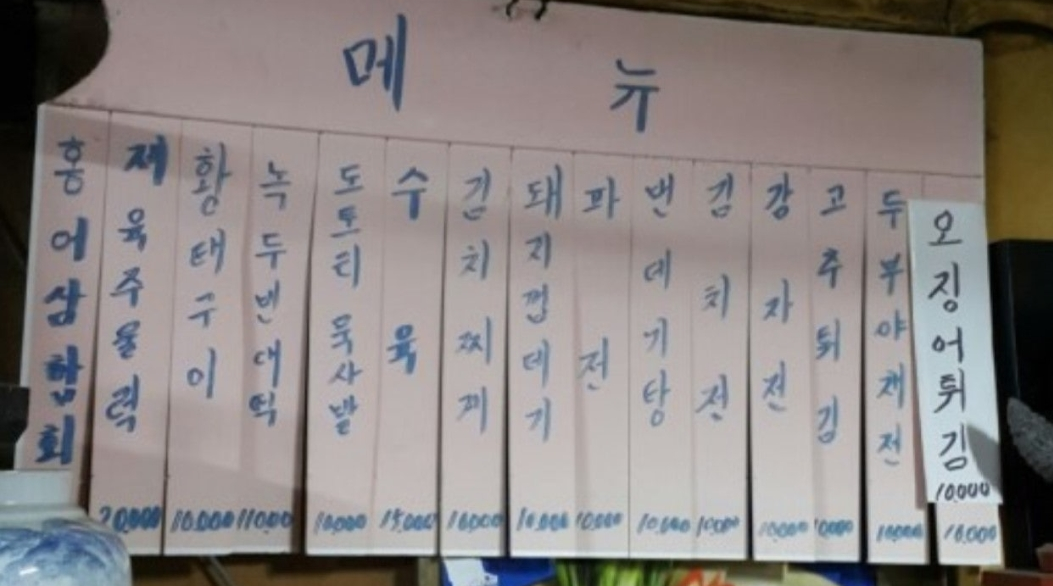 메뉴
홍어삼합회
제육주물럭 20,000
황태구이 10,000
녹두빈대떡 11,000
도토리묵사발 10,000
수육 15,000
김치찌개 10,000
돼지껍데기 10,000
파전 10,000
번데기탕 10,000
김치전 10,000
감자전 10,000
고추튀김 10,000
두부야채전 10,000
오징어튀김 10,000
10,000